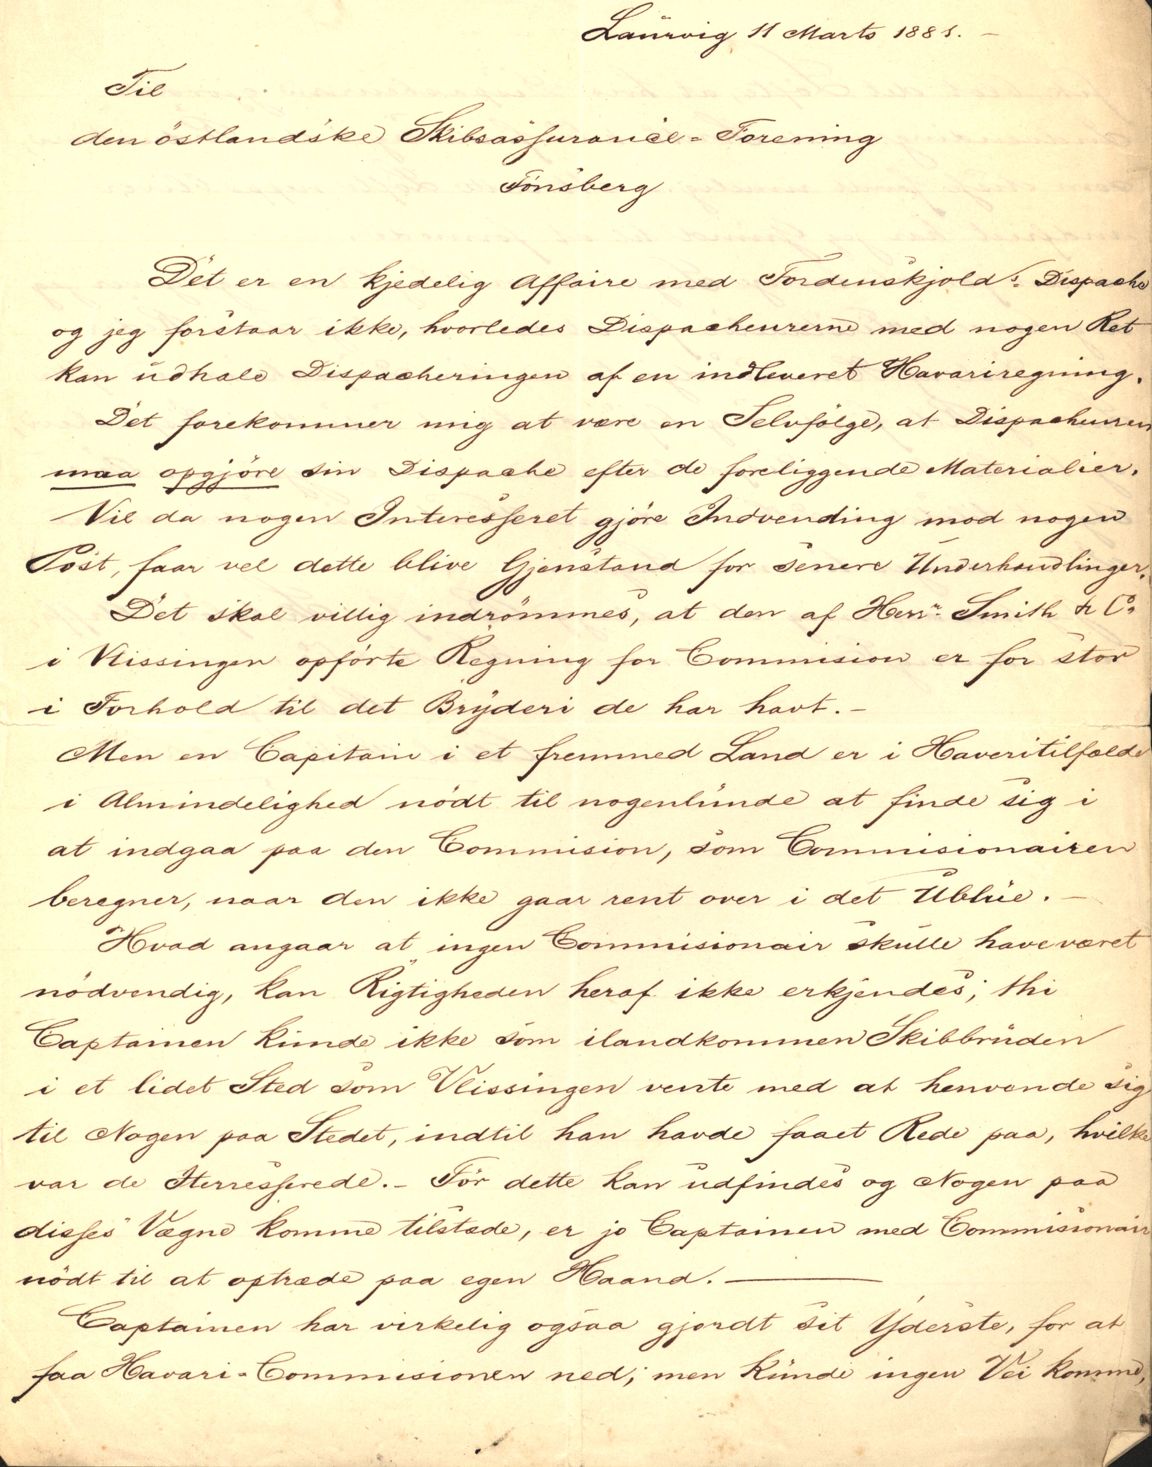 Laurvig 11 Marts 1881. –
Til
den östlandske Skibsassurance-Forening
Tönsberg
Det er en kjedelig Affaire med Tordenskjold's Dispache
og jeg forstaar ikke, hvorledes Dispacheurerne med nogen Ret
kan udhale Dispacheringen af en indleveret Havariregning.
Det forekommer mig at være en Selvfölge, at Dispacheuren
maa opgjöre sin Dispache efter de foreliggende Materialier.
Vil da nogen Interesseret gjöre Indvending mod nogen
Post, faar vel dette blive Gjenstand for senere Underhandlinger.
Det skal villig indrömmes, at den af Herr. Smith & Co
i Vlissingen opförte Regning for Commision er for stor
i Forhold til det Bryderi de har havt. –
Men en Capitain i et fremmed Land er i Haveritilfælde
i Almindelighed nödt til nogenlunde at finde sig i
at indgaa paa den Commision, som Commisionairen
beregner, naar den ikke gaar rent over i det Ublue. –
Hvad angaar at ingen Commisionair skulle have været
nödvendig, kan Rigtigheden heraf ikke erkjendes; thi
Captainen kunde ikke som ilandkommen Skibbruden
i et lidet Sted som Vlissingen vente med at henvende sig
til Nogen paa Stedet, indtil han havde faaet Rede paa, hvilke
var de Iterresserede. – För dette kan udfindes og Nogen paa
disses Vegne komme tilstede, er jo Captainen med Commisionair
nödt til at optræde paa egen Haand. –
Captainen har virkelig ogsaa gjordt sit Yderste, for at
faa Havari-Commisionen ned; men kunde ingen Vei komme,